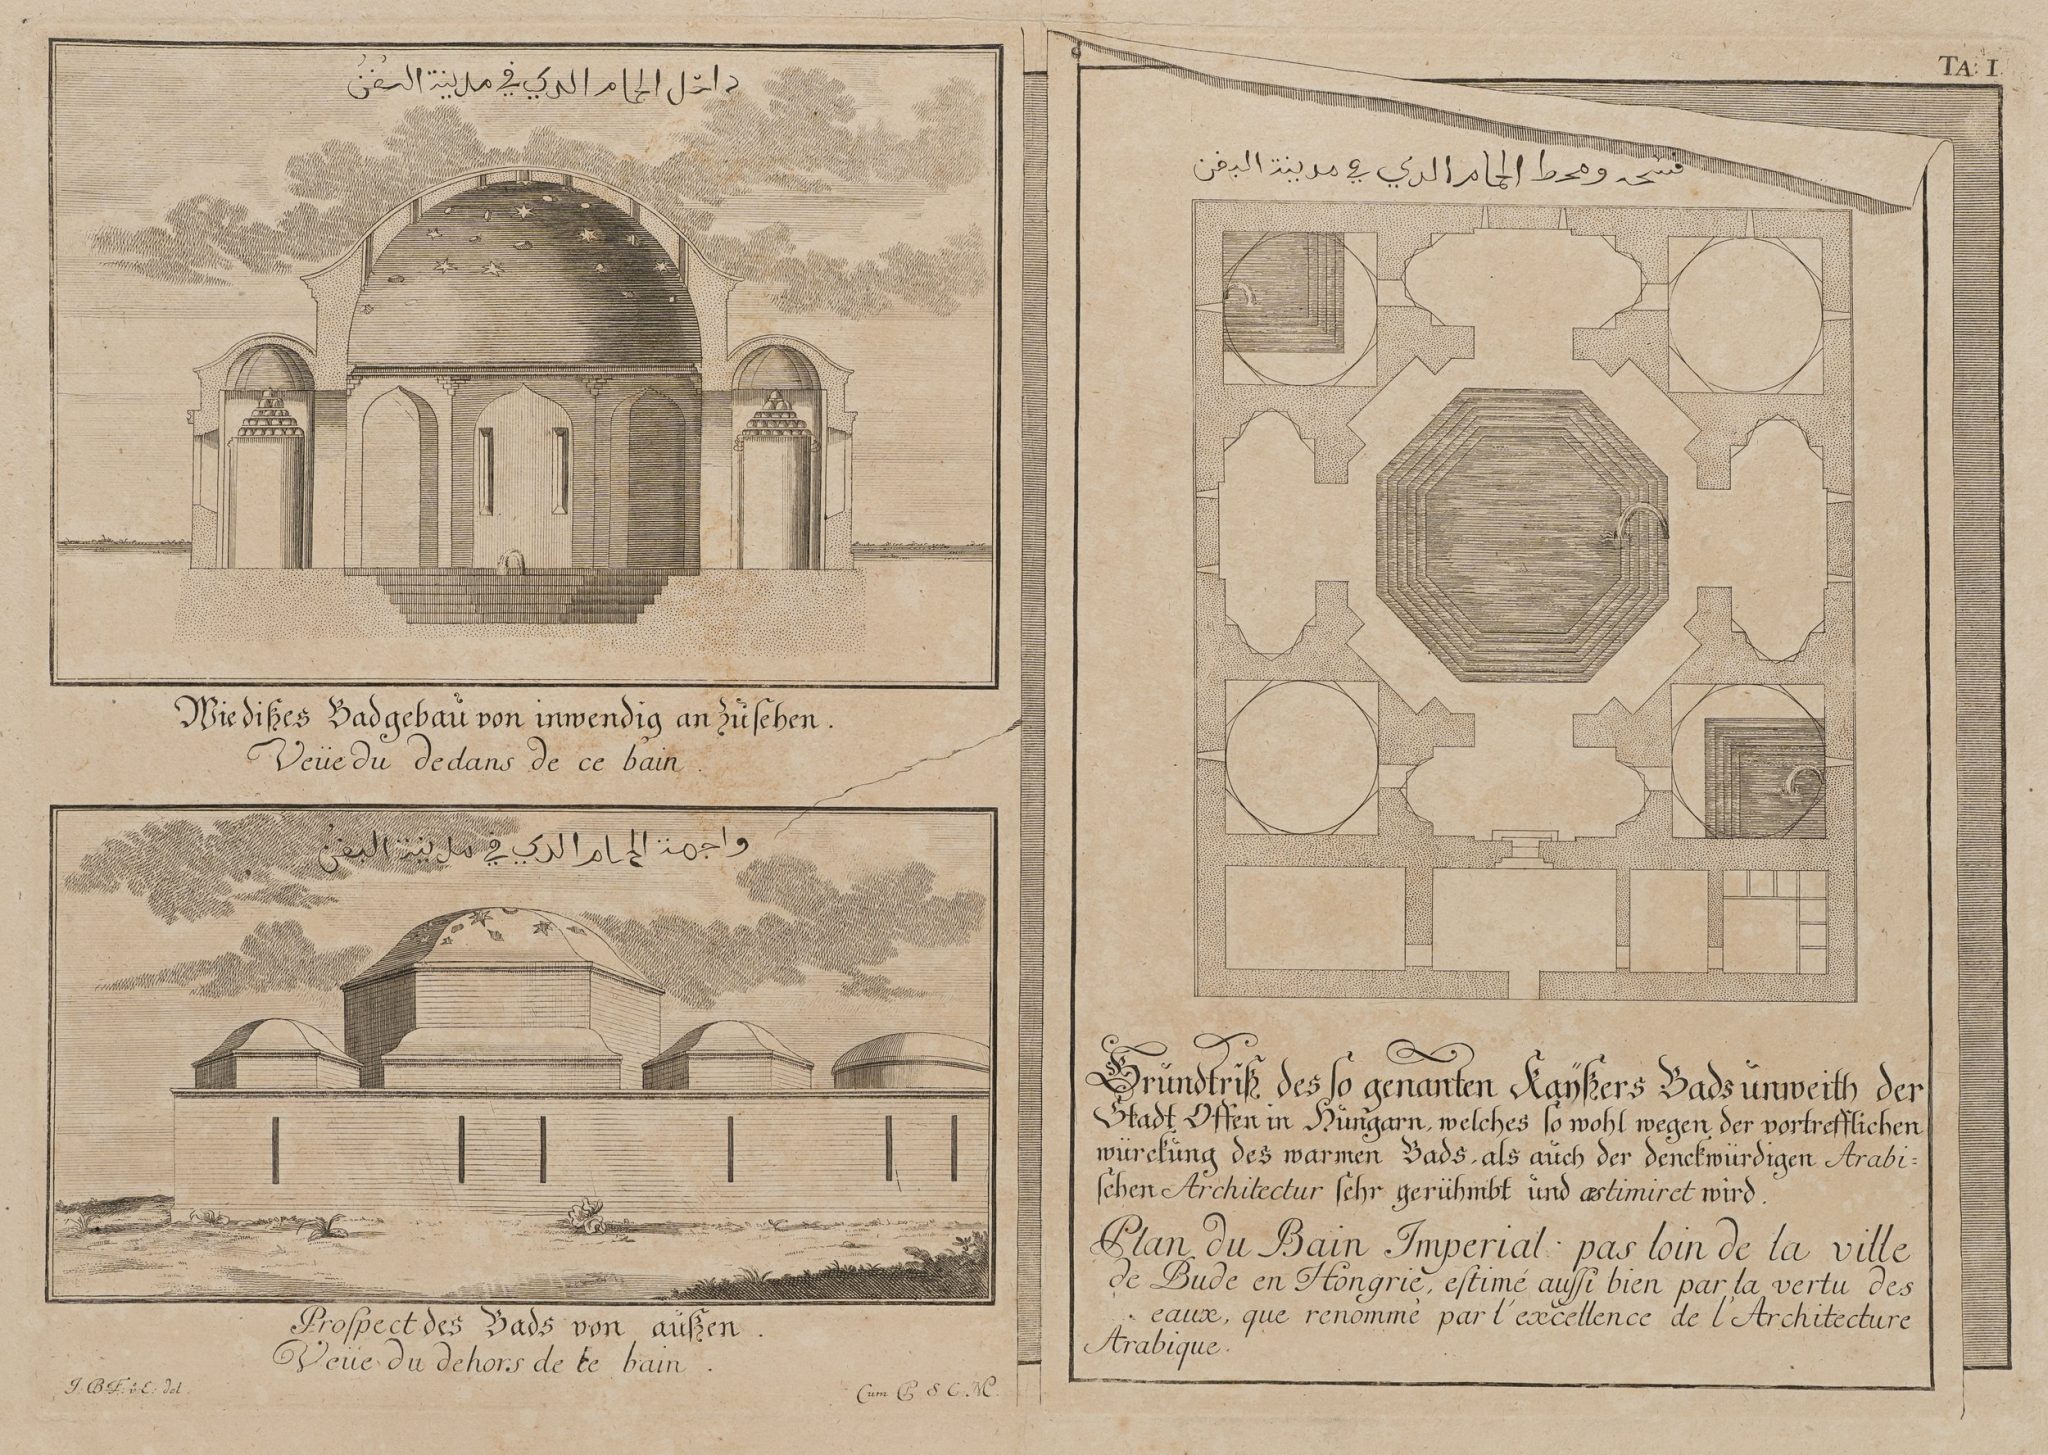 داخل الحمام الدي في مدينة البفن
Wie dißes Badgebaü von inwendig anzüsehen.
Veüe du dedans de ce bain.
واجهة الحمام الدي في مدينة البفن
Prospect des Bads von aüßen.
Veüe du dehors de ce bain.
I. B. F. v. E. del.
Cum P. S. C. M.
TA: I.
ومحط الحمام الدي في مدينة البفن
Gründtriß des so genanten Kaÿßers Bads ünweith der
Stadt Offen in Hüngarn, welches so wohl wegen der vortrefflichen
würckung des warmen Bads, als aüch der denckwürdigen Arabi=
schen Architectur sehr gerühmbt ünd æstimiret wird.
Plan du Bain Imperial: pas loin de la ville
de Bude en Hongrie, estimé aussi bien par la vertu des
eaux, que renommé par l'excellence de l'Architecture
Arabique.